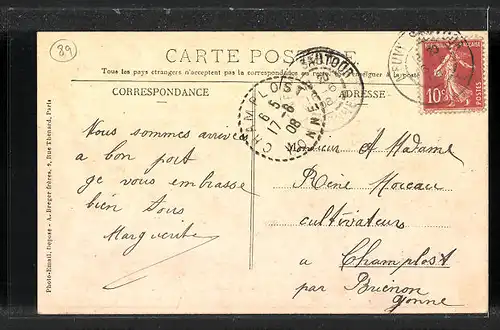 89
CARTE POSTALE
Tous les pays étrangers n'acceptent pas la correspondance au
CORRESPONDANCE
ADRESSE
POSTES
10c
CHAMPLOST
YONNE
6-5
17-8
08
Nous sommes arrivés
a bon port
je vous embrasse
bien tous
Marguerite
Monsieur & Madame
Réné Moreau
cultivateurs
a Champlost
par Brienon
Yonne
Photo-Email, dépose - A. Breger frères, 9, Rue Thénard, Paris